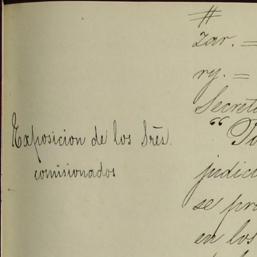 Exposicion de los Sres.
comisionados
zar. =
ry. =
Secret
se pro
en los